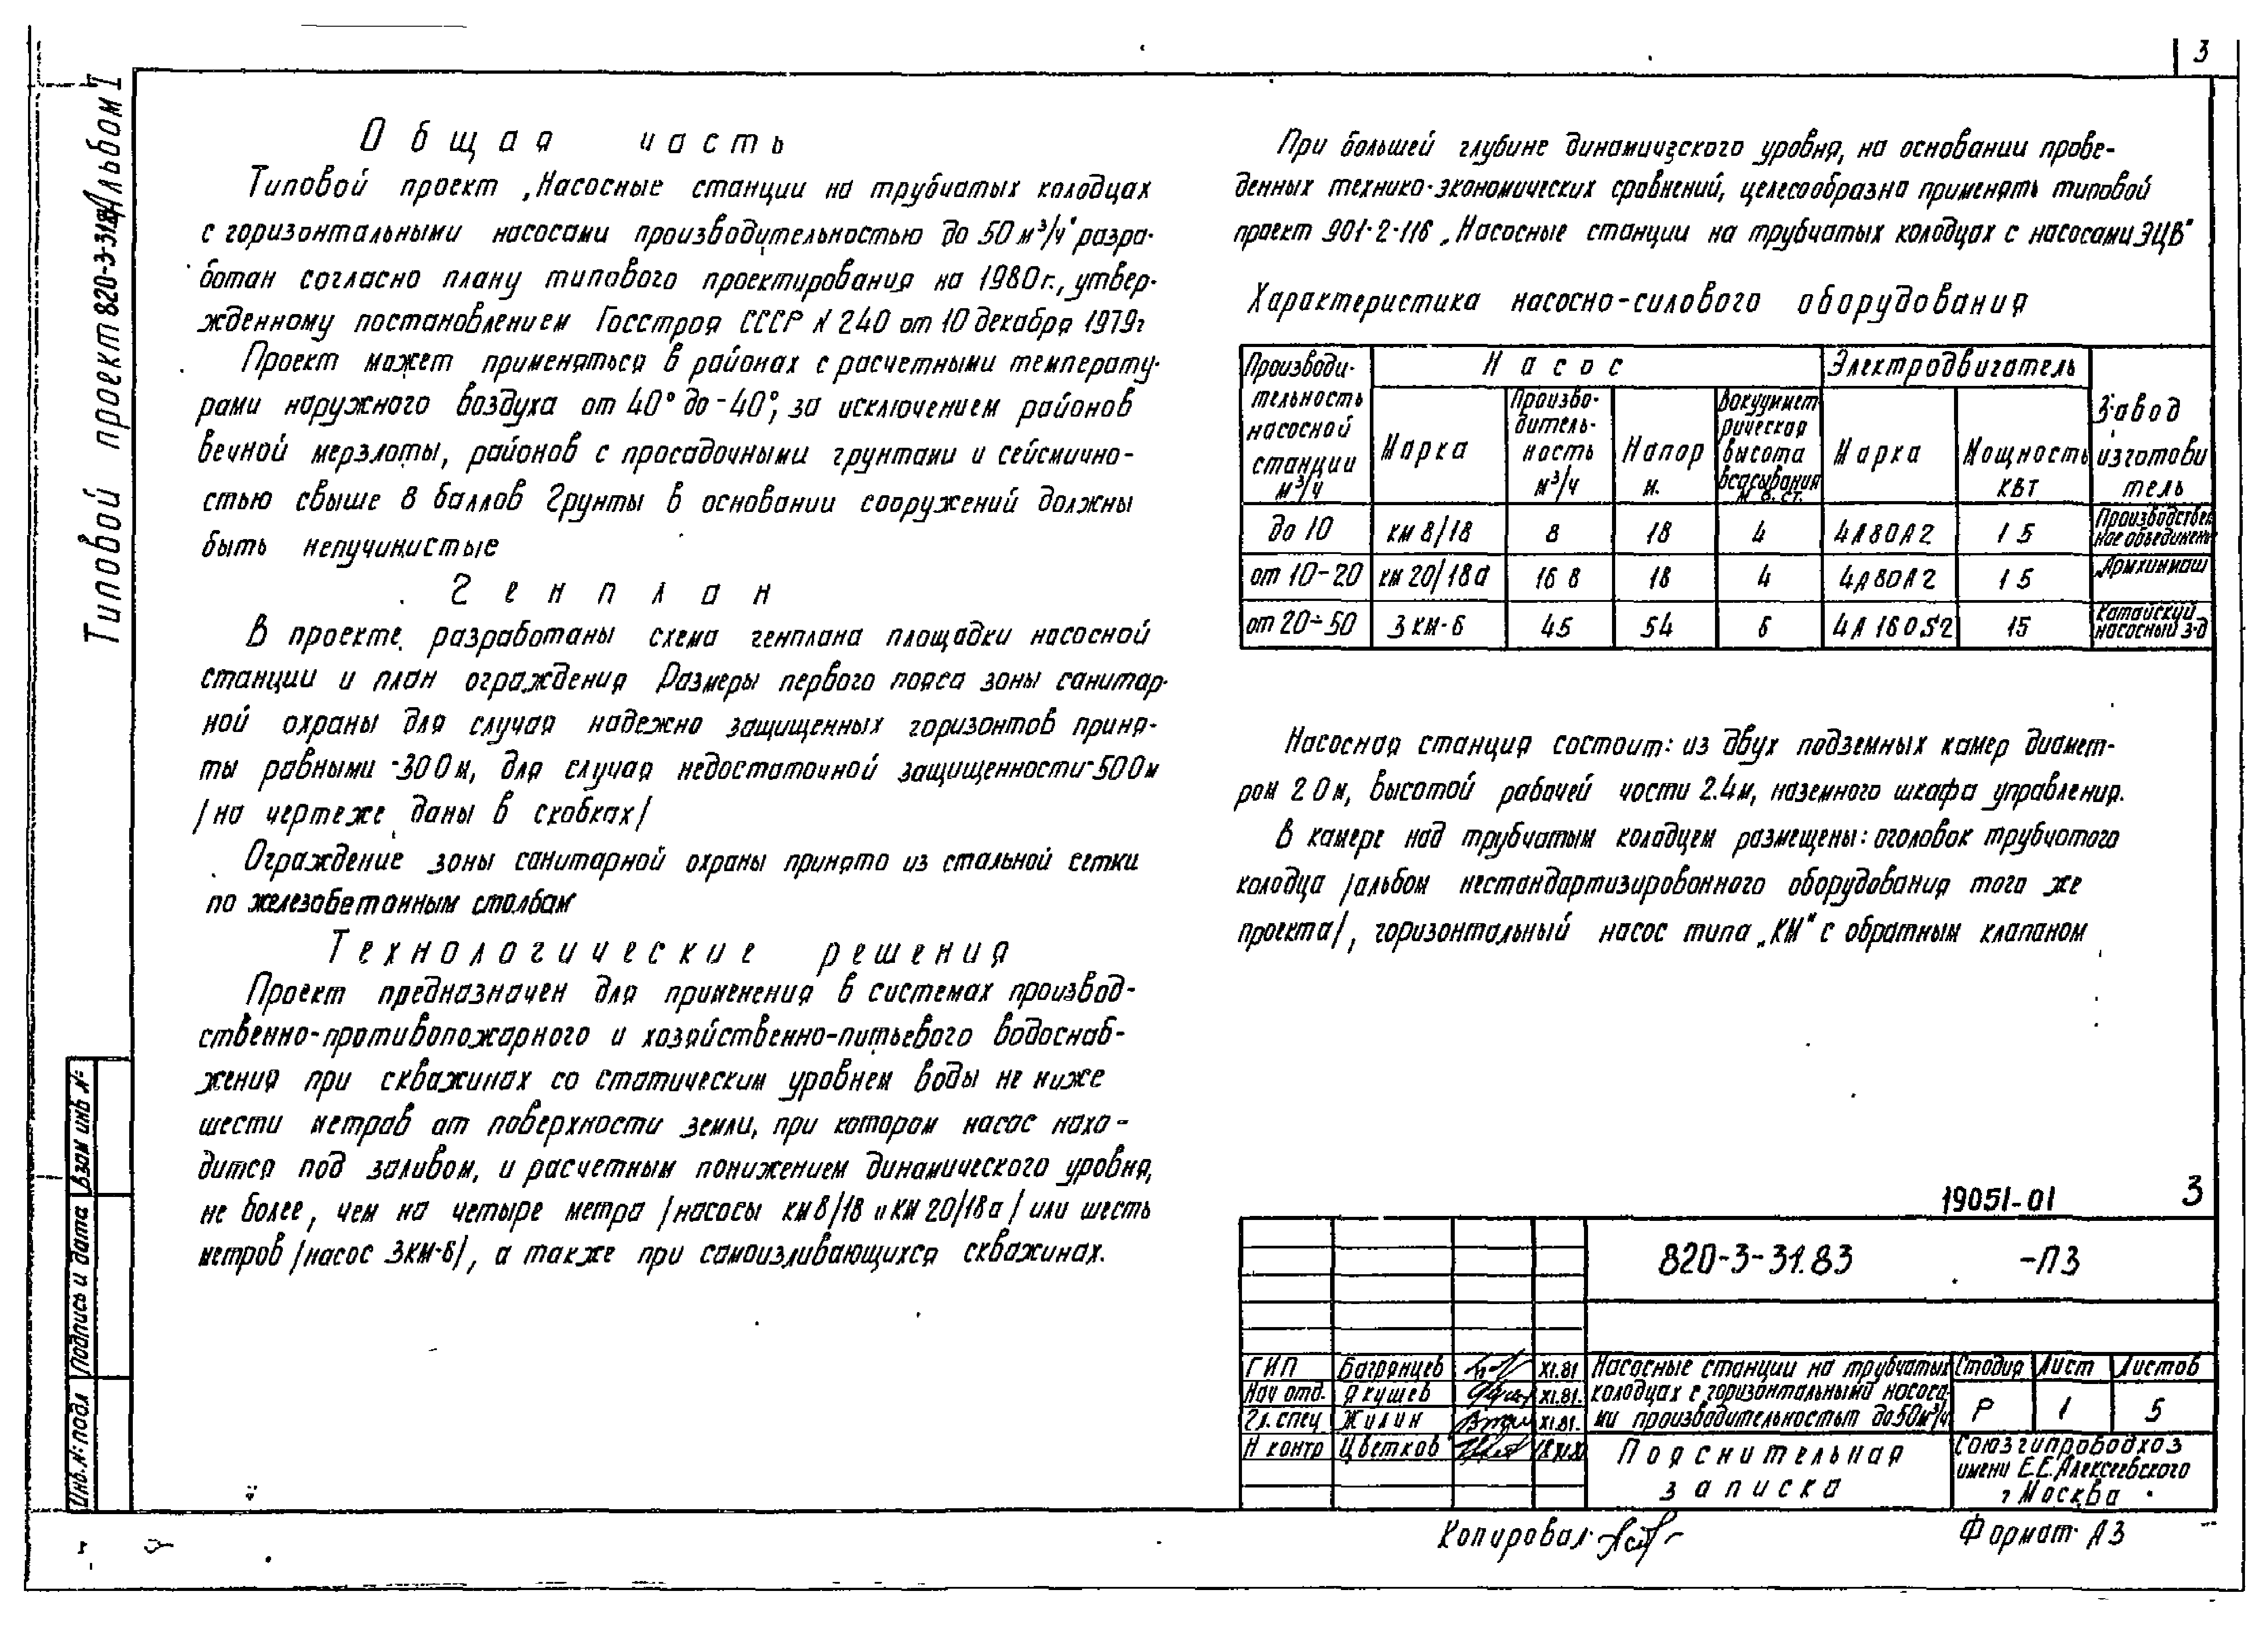 3
Типовой проект 820-3-31.83 Альбом I
Общая часть
Типовой проект „Насосные станции на трубчатых колодцах
с горизонтальными насосами производительностью до 50 м³/ч" разра-
ботан согласно плану типового проектирования на 1980г., утвер-
жденному постановлением Госстроя СССР № 240 от 10 декабря 1979г
Проект может применяться в районах с расчетными температу-
рами наружного воздуха от 40° до -40°, за исключением районов
вечной мерзлоты, районов с просадочными грунтами и сейсмично-
стью свыше 8 баллов Грунты в основании сооружений должны
быть непучинистые
Генплан
В проекте разработаны схема генплана площадки насосной
станции и план ограждения Размеры первого пояса зоны санитар-
ной охраны для случая надежно защищенных горизонтов приня-
ты равными -300м, для случая недостаточной защищенности-500м
/на чертеже даны в скобках/
Ограждение зоны санитарной охраны принято из стальной сетки
по железобетонным столбам
Технологические решения
Проект предназначен для применения в системах производ-
ственно-противопожарного и хозяйственно-питьевого водоснаб-
жения при скважинах со статическим уровнем воды не ниже
шести метров от поверхности земли, при котором насос нахо-
дится под заливом, и расчетным понижением динамического уровня,
не более, чем на четыре метра /насосы КМ8/18 и КМ 20/18а/ или шесть
метров /насос 3КМ-6/, а также при самоизливающихся скважинах.
При большей глубине динамического уровня, на основании прове-
денных технико-экономических сравнений, целесообразно применять типовой
проект 901-2-116 „Насосные станции на трубчатых колодцах с насосами ЭЦВ"
Характеристика насосно-силового оборудования
Производи-
тельность
насосной
станции
м³/ч
Насос
Электродвигатель
Завод
изготови
тель
Марка
Произво-
дитель-
ность
м³/ч
Напор
м.
Вакууммет
рическая
высота
всасывания
м в. ст.
Марка
Мощность
КВТ
до 10 КМ 8/18 8 18 4 4А80А2 1 5 Производствен
ное объединен
от 10-20 КМ 20/18а 16 8 18 4 4А80А2 1 5 „Армхиммаш
от 20÷50 3 КМ-6 45 54 6 4А 160S2 15 Катайский
насосный з-д
Насосная станция состоит: из двух подземных камер диамет-
ром 2 0м, высотой рабочей части 2.4м, наземного шкафа управления.
В камере над трубчатым колодцем размещены: оголовок трубчатого
колодца /альбом нестандартизированного оборудования того же
проекта/, горизонтальный насос типа „КМ" с обратным клапаном
19051-01 3
820-3-31.83 -ПЗ
ГИП Багрянцев XI.81
Нач отд. Якушев XI.81.
Гл. спец Жилин XI.81.
Н контр Цветков
Насосные станции на трубчатых
колодцах с горизонтальными насоса-
ми производительностью до 50м³/ч
Стадия Лист Листов
Р 1 5
Пояснительная
записка
Союзгипроводхоз
имени Е.Е.Алексеевского
г Москва
Взам инв №
Подпись и дата
Инв.№ подл
Копировал
Формат А3